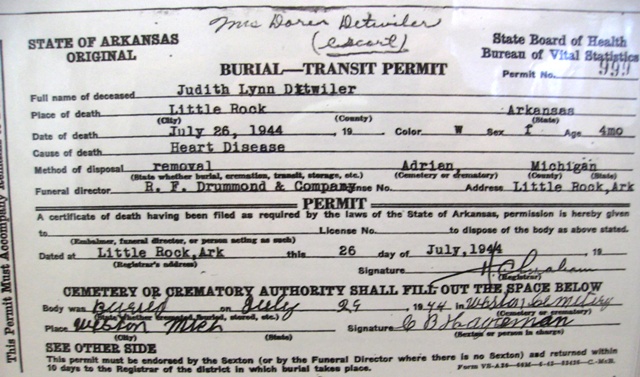 Mrs Doren Detwiler
(escort)
STATE OF ARKANSAS
ORIGINAL
State Board of Health
Bureau of Vital Statistics
BURIAL—TRANSIT PERMIT
Permit No. 999
Full name of deceased Judith Lynn Ditwiler
Place of death Little Rock Arkansas
(City) (County) (State)
Date of death July 26, 1944 , 19 Color W Sex f Age 4mo
Cause of death Heart Disease
Method of disposal removal Adrian, Michigan
(State whether burial, cremation, transit, storage, etc.) (Cemetery or crematory) (County) (State)
Funeral director R. F. Drummond & Company nse No. Address Little Rock,Ark
PERMIT
A certificate of death having been filed as required by the laws of the State of Arkansas, permission is hereby given
to License No. to dispose of the body as above stated.
(Embalmer, funeral director, or person acting as such)
Dated at Little Rock,Ark this 26 day of July,1944 , 19
(Registrar's address)
Signature
(Registrar)
CEMETERY OR CREMATORY AUTHORITY SHALL FILL OUT THE SPACE BELOW
Body was Buried on July 29 , 1944 in Weston Cemetery
(State whether cremated, buried, stored, etc.) (Cemetery or crematory)
Place Weston Mich Signature C B
(City) (State) (Sexton or person in charge)
SEE OTHER SIDE
This permit must be endorsed by the Sexton (or by the Funeral Director where there is no Sexton) and returned within
10 days to the Registrar of the district in which burial takes place.
This Permit Must Accompany Remains to